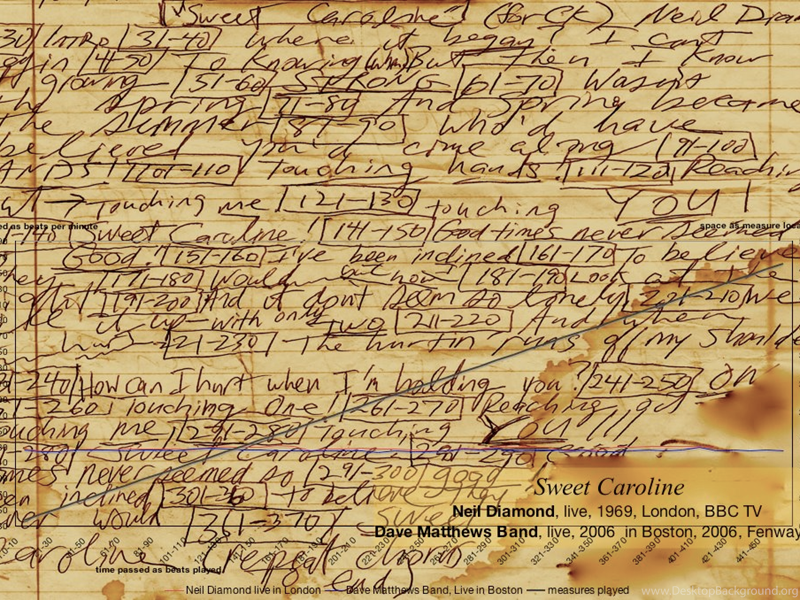 "Sweet Caroline" (for CK) Neil Diam
30) INTRO [31-40] where it began? I can't
gin [4-50] To Knowing But Then I Know
growing [51-60] STRONG [61-70] Wasn't
the Spring [71-80] And Spring became
the summer [81-90] who'd have
believed you'd come along [91-100]
ANDS! [101-110] Touching hands! [111-120] Reachin
ut → Touching me! [121-130] touching YOU!
ed as beats per minute
space as measure loca
-140 Sweet Caroline! [141-150] Good times never seemed
Good! [151-160] I've been inclined [161-170] To believe
They [171-180] Would but now [181-190] Look at the
[191-200] And it don't seem so lonely We
it up with only two [211-220] And when
hurt [221-230] The hurtin runs off my Shoulde
-240] How can I hurt when I'm holding you? [241-250] On
-260] Touching One! [261-270] Reaching out
uching me [271-280] Touching You!!!
Sweet Caroline Good
mes never seemed so [291-300] good
en inclined To believe They
ver would Sweet
Caroline repeat chorus
end
Sweet Caroline
Neil Diamond, live, 1969, London, BBC TV
Dave Matthews Band, live, 2006 in Boston, 2006, Fenway
101-110 201-210 281-291 301-311 321-331 341-351 361-371 381-391 401-411 421-431 441-451
time passed as beats played
Neil Diamond live in London Dave Matthews Band, Live in Boston measures played
www.DesktopBackground.org